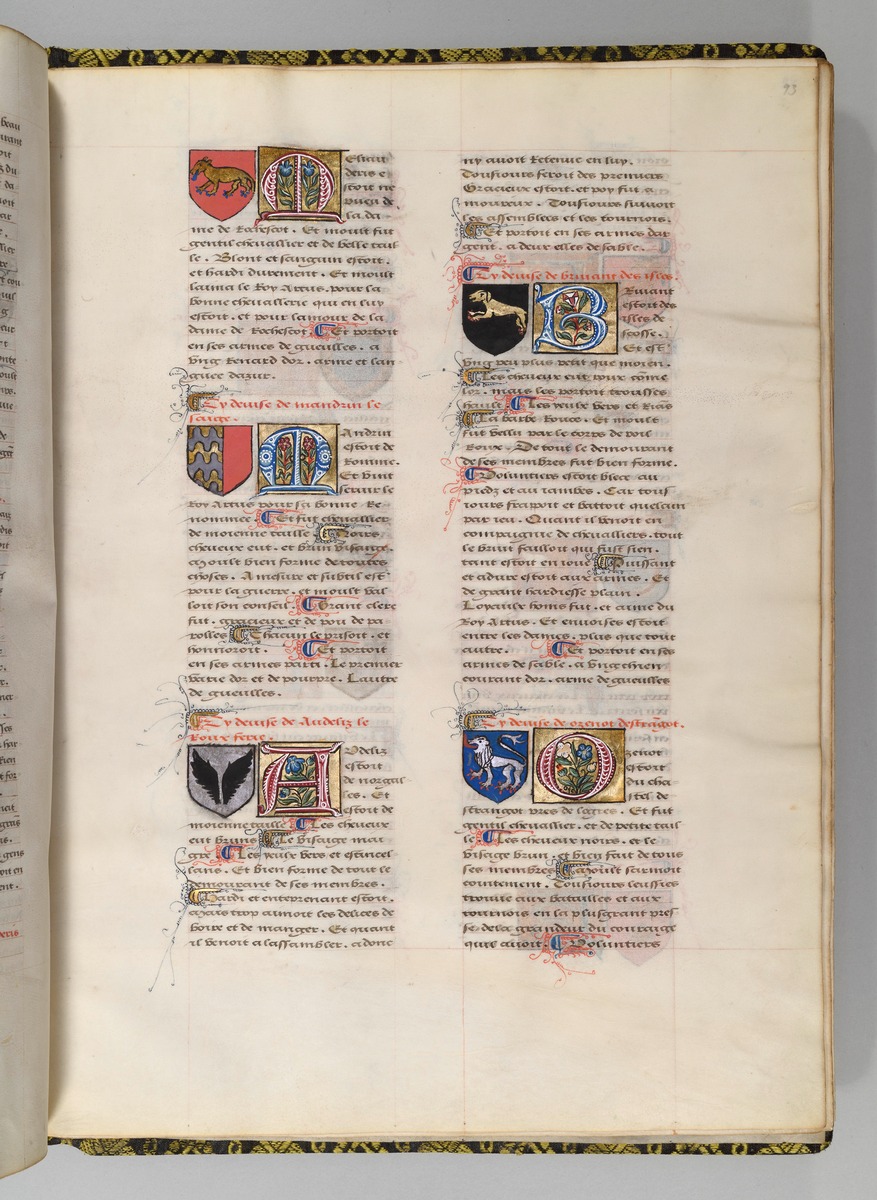 93
Esunt
deris e
stoit ne
pueu de
la da
me de Rochescot. Et moult fut
gentil cheuallier et de belle tail
le. Blont et sanguin estoit.
et hardi durement. Et moult
lama le Roy Artus. pour sa
bonne cheuallerie qui en luy
estoit. et pour lamour de la
dame de Rochescot. Et portoit
en ses armes de gueulles. a
vng Renard dor. arme et lan
guee dazur.
Cy deuise de mandrin le
saige.
Mandrin
estoit de
Romme.
Et vint
seruir le
Roy Artus pour sa bonne Re
nommee. Et fut cheuallier
de moienne taille. Noirs
cheueux eut. et brun visaige.
Moult bien forme de toutes
choses. Amesure et subtil est
pour la guerre. et moult val
loit son conseil. Grant clerc
fut. gracieux et de pou de pa
rolles. Chacun le prisoit. et
honnoroit. Et portoit
en ses armes parti. Le premier
vaire dor et de pourpre. Lautre
de gueulles.
Cy deuise de Andeliz le
Roux ferie.
Andeliz
estoit
de norgal
les. Et
estoit de
moienne taille. Les cheueux
eut bruns. Le visaige mai
gre. Les yeulx vers et estincel
lans. Et bien forme de tout le
demourant de ses membres.
Hardi et entreprenant estoit.
Mais trop aimoit les delices de
boire et de manger. Et quant
il venoit a lassambler. adonc
ny auoit Retenue en luy.
Tousiours feroit des premiers
Gracieux estoit. et poy fut a
moureux. Tousiours suiuoit
les assemblees et les tournois.
Et portoit en ses armes dar
gent. a deux elles de sable.
Cy deuise de bruiant des isles.
Bruiant
estoit des
isles de
scosse.
Et est
vng peu plus petit que moien.
Les cheueux eut roux come
lor. mais les portoit trousses
hault. Les yeulx vers et Rias
La barbe Rouce. Et moult
fut vellu par le corps de poil
Roux. De tout le demourant
de ses membres fut bien forme.
Voluntiers estoit blece au
piedz et au iambes. Car tous
iours frapoit et battoit quelcun
par ieu. Quant il venoit en
compaignie de cheualliers. tout
le bruit failloit qui fust sien.
tant estoit en ioue. Puissant
et adure estoit aux armes. Et
de grant hardiesse plain.
Loyaulx homs fut. et ame du
Roy Artus. Et enuoises estoit
entre les dames. plus que tout
autre. Et portoit en ses
armes de sable. a vng chien
courant dor. arme de gueulles
Cy deuise de ozenot destrangot.
Ozenot
estoit
du cha
stel de
strangot pres de logres. Et fut
gentil cheuallier. et de petite tail
le. Les cheueux noirs. et le
visaige brun. et bien fait de tous
ses membres. Moult sarmoit
cointement. Tousiours leussies
trouue aux batailles et aux
tournois en la plusgrant pres
se. de la grandeur du couraige
quil auoit. Voluntiers